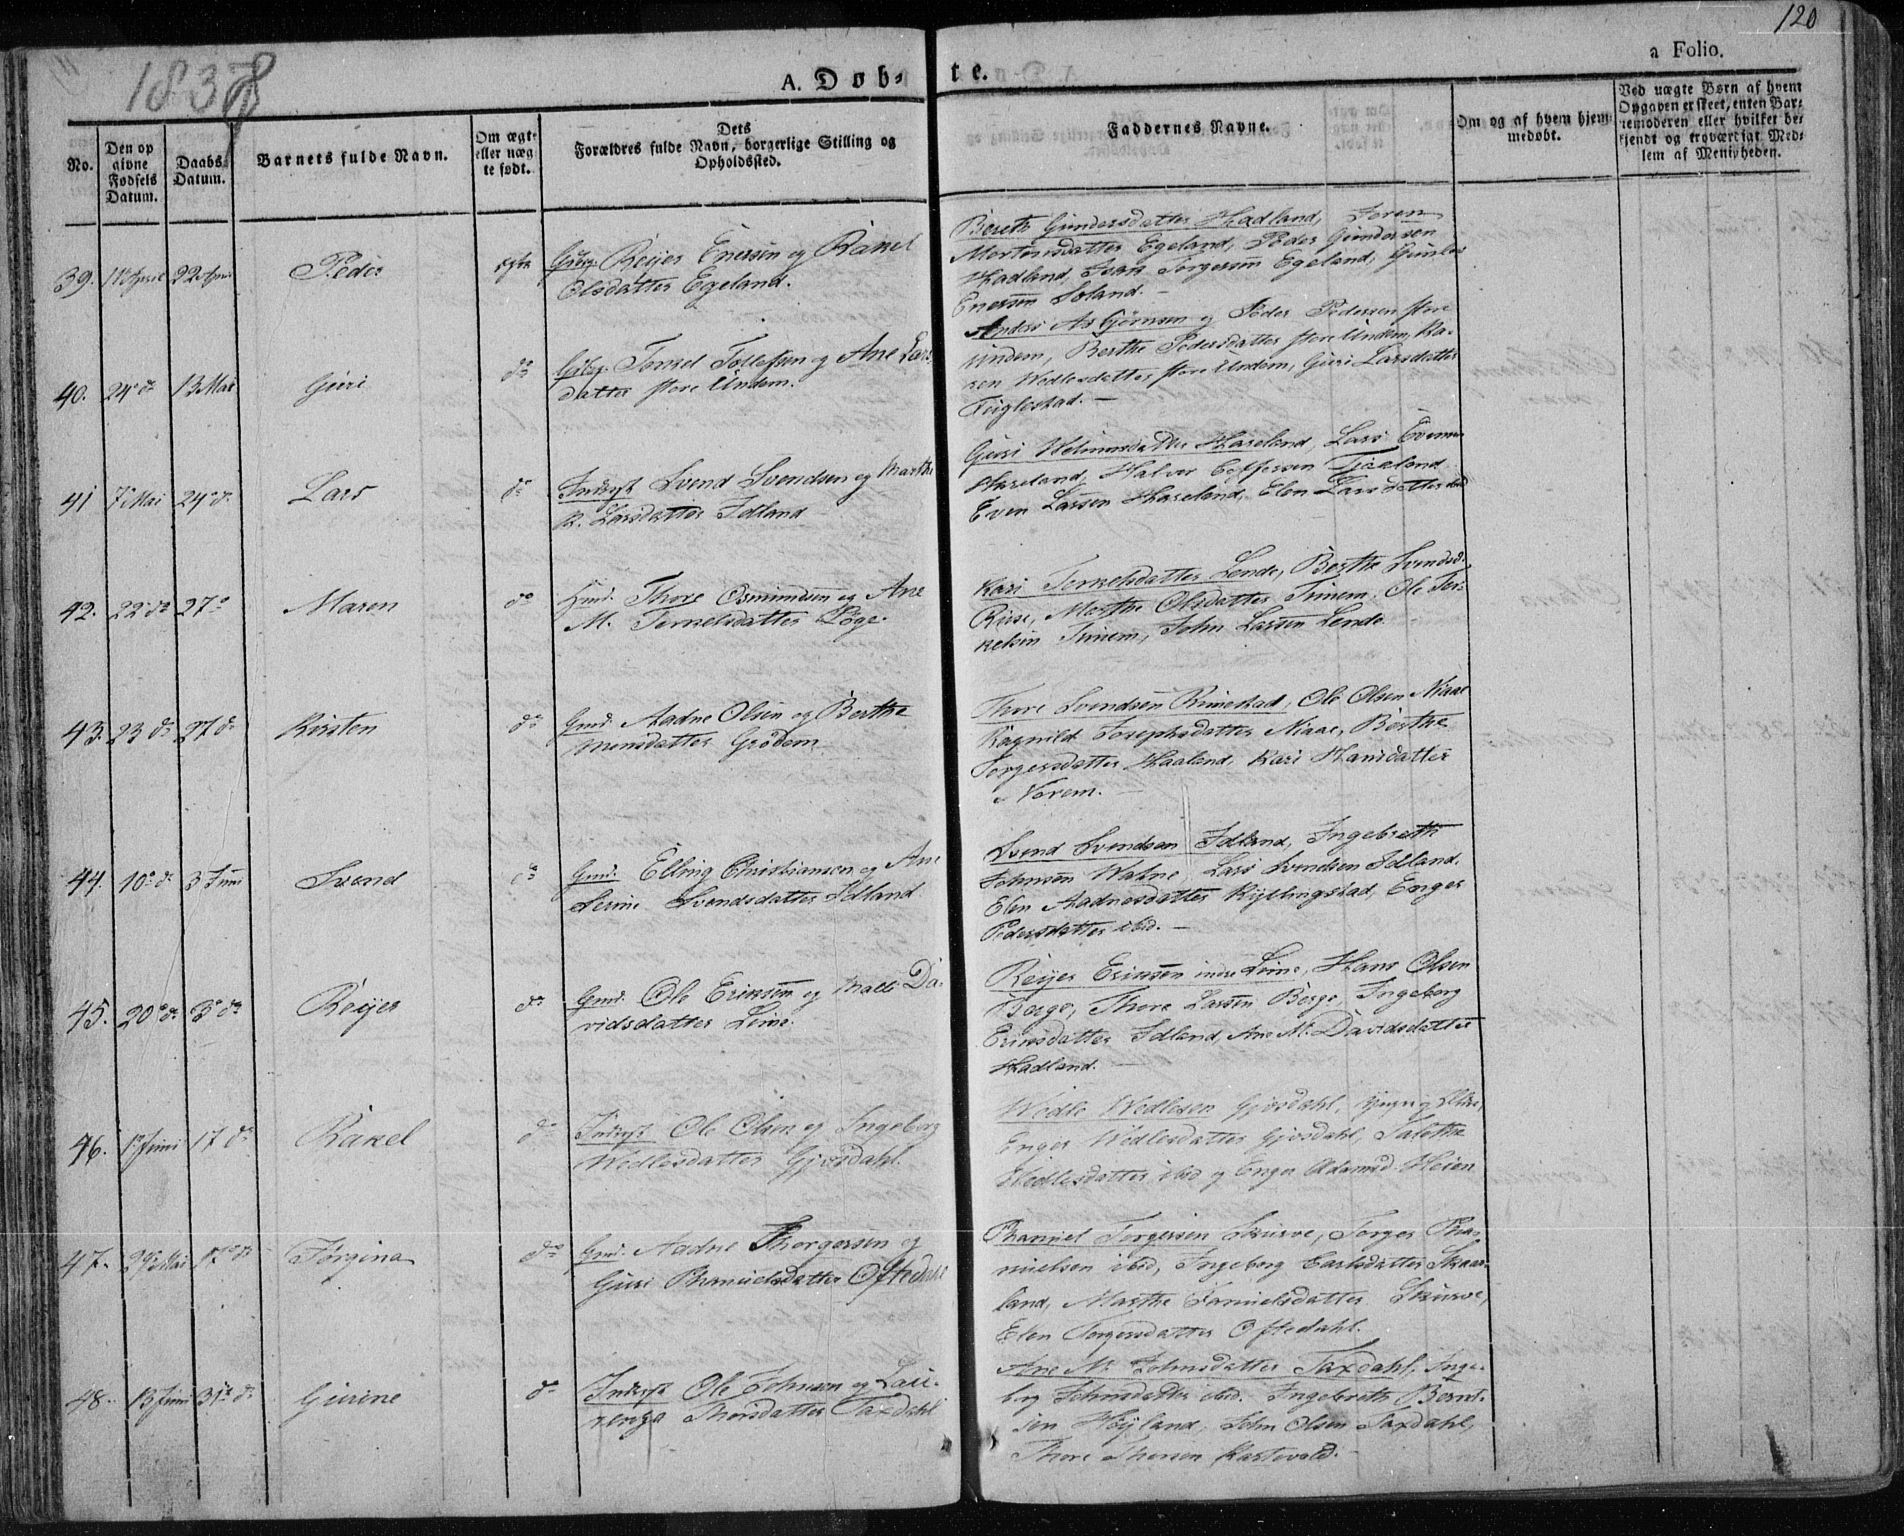 1838
120
A. Døb-
te.
a Folio.
No.
Den op
givne
Fødsels
Datum.
Daabs
Datum.
Barnets fulde Navn.
Om ægte
eller uæg
te født.
Dets
Forældres fulde Navn, borgerlige Stilling og
Opholdssted.
Faddernes Navne.
Om og af hvem hjem
medøbt.
Ved uægte Børn af hvem
Opgaven er skeet, enten Bar-
nemoderen eller hvilket be-
kjendt og troværdigt Med-
lem af Menigheden.
39. April 22 April Peder ægte Reijer Enersen og Rakel
Olsdatter Egeland.
Bereth Gundersdatter Hadland, Joren
Mortensdatter Egeland, Peder Gundersen
Hadland, Isak Torgersen Egeland, Gunder
Enersen Soland.
40. 24 do 13 Mai Guri do Tonnel Tollefsen og Ane Lars
datter store Undem.
Anders Asgjørnsen og Peder Pedersen store
Undem, Berthe Pedersdatter store Undem, Ka-
ren Wedlesdatter store Undem, Guri Larsdatter
Tuiglestad.
41 7 Mai 24 do Lars do Inderst Svend Svendsen og Marthe
K. Larsdatter Idland
Guri Haseland, Lars Evensen
Haseland, Halvor Tjaaland
Even Larsen Haseland, Elen Larsdatter ibid
42. 22 do 27 do Maren do Gmd. Thore Osmundsen og Ane
M. Tornelsdatter Løge.
Kari Tornelsdatter Lende, Berthe Svendsd.
Rise, Marthe Olsdatter Timem. Ole Tor-
kelsen Timem, John Larsen Lende
43. 23 do 27 do Kirsten do Gmd. Aadne Olsen og Berthe
Monsdatter Grødem
Thore Svendsen Rimestad, Ole Olsen Niaae
Ragnild Josephsdatter Niaae, Berthe
Torgersdatter Haaland, Kari Hansdatter
Vorem.
44. 10 do 3 Juni Svend do Gmd. Elling Christiansen og Ane
Serine Svendsdatter Idland
Svend Svendsen Idland, Ingebreth
Johnsen Walne, Lars Svendsen Idland.
Elen Aadnesdatter Kyllingstad, Enger
Pedersdatter ibid.
45. 20 do 3 do Reijer do Gmd. Ole Eriksen og Malli Da-
vidsdatter Lime.
Reijer Eriksen indre Lime, Hans Olsen
Berge, Thore Larsen Berge, Ingeborg
Eriksdatter Idland, Ane M. Davidsdatter
Hadland.
46. 1 Juni 17 do Rakel do Inderst Ole Olsen og Ingeborg
Wedlesdatter Gjesdahl.
Wedle Wedlesen Gjesdahl,
Enger Wedlesdatter Gjesdahl, Salethe
Wedlesdatter ibid og Enger Adamsd. Heien
47. 29 Mai 17 do Torgina do Gmd. Aadne Thorgersen og
Guri Phanuelsdatter Oftedahl
Phanuel Torgersen Skurve, Torger Pha-
nuelsen ibid, Ingeborg Carlsdatter Skaar-
land, Marthe Samuelsdatter Skurve,
Elen Torgersdatter Oftedahl.
48. 13 Juni 31 do Gurine do Inderst Ole Johnsen og Lau-
Thorsdatter Taxdahl
Ane M. Johnsdatter Taxdahl, Inge-
borg Johnsdatter ibid. Ingebreth Bernt-
sen Høyland, John Olsen Taxdahl,
Thore Thorsen Kastevold.